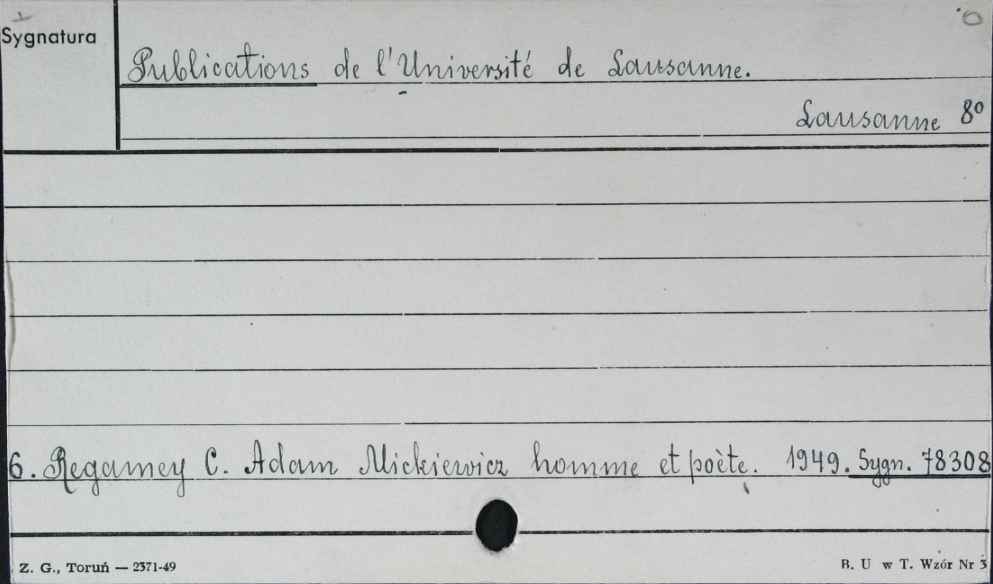 Sygnatura
Publications de l'Université de Lausanne.
Lausanne 8º
6. Regamey C. Adam Mickiewicz homme et poète. 1949. Sygn. 78308
Z. G., Toruń — 2371-49
B. U w T. Wzór Nr 3